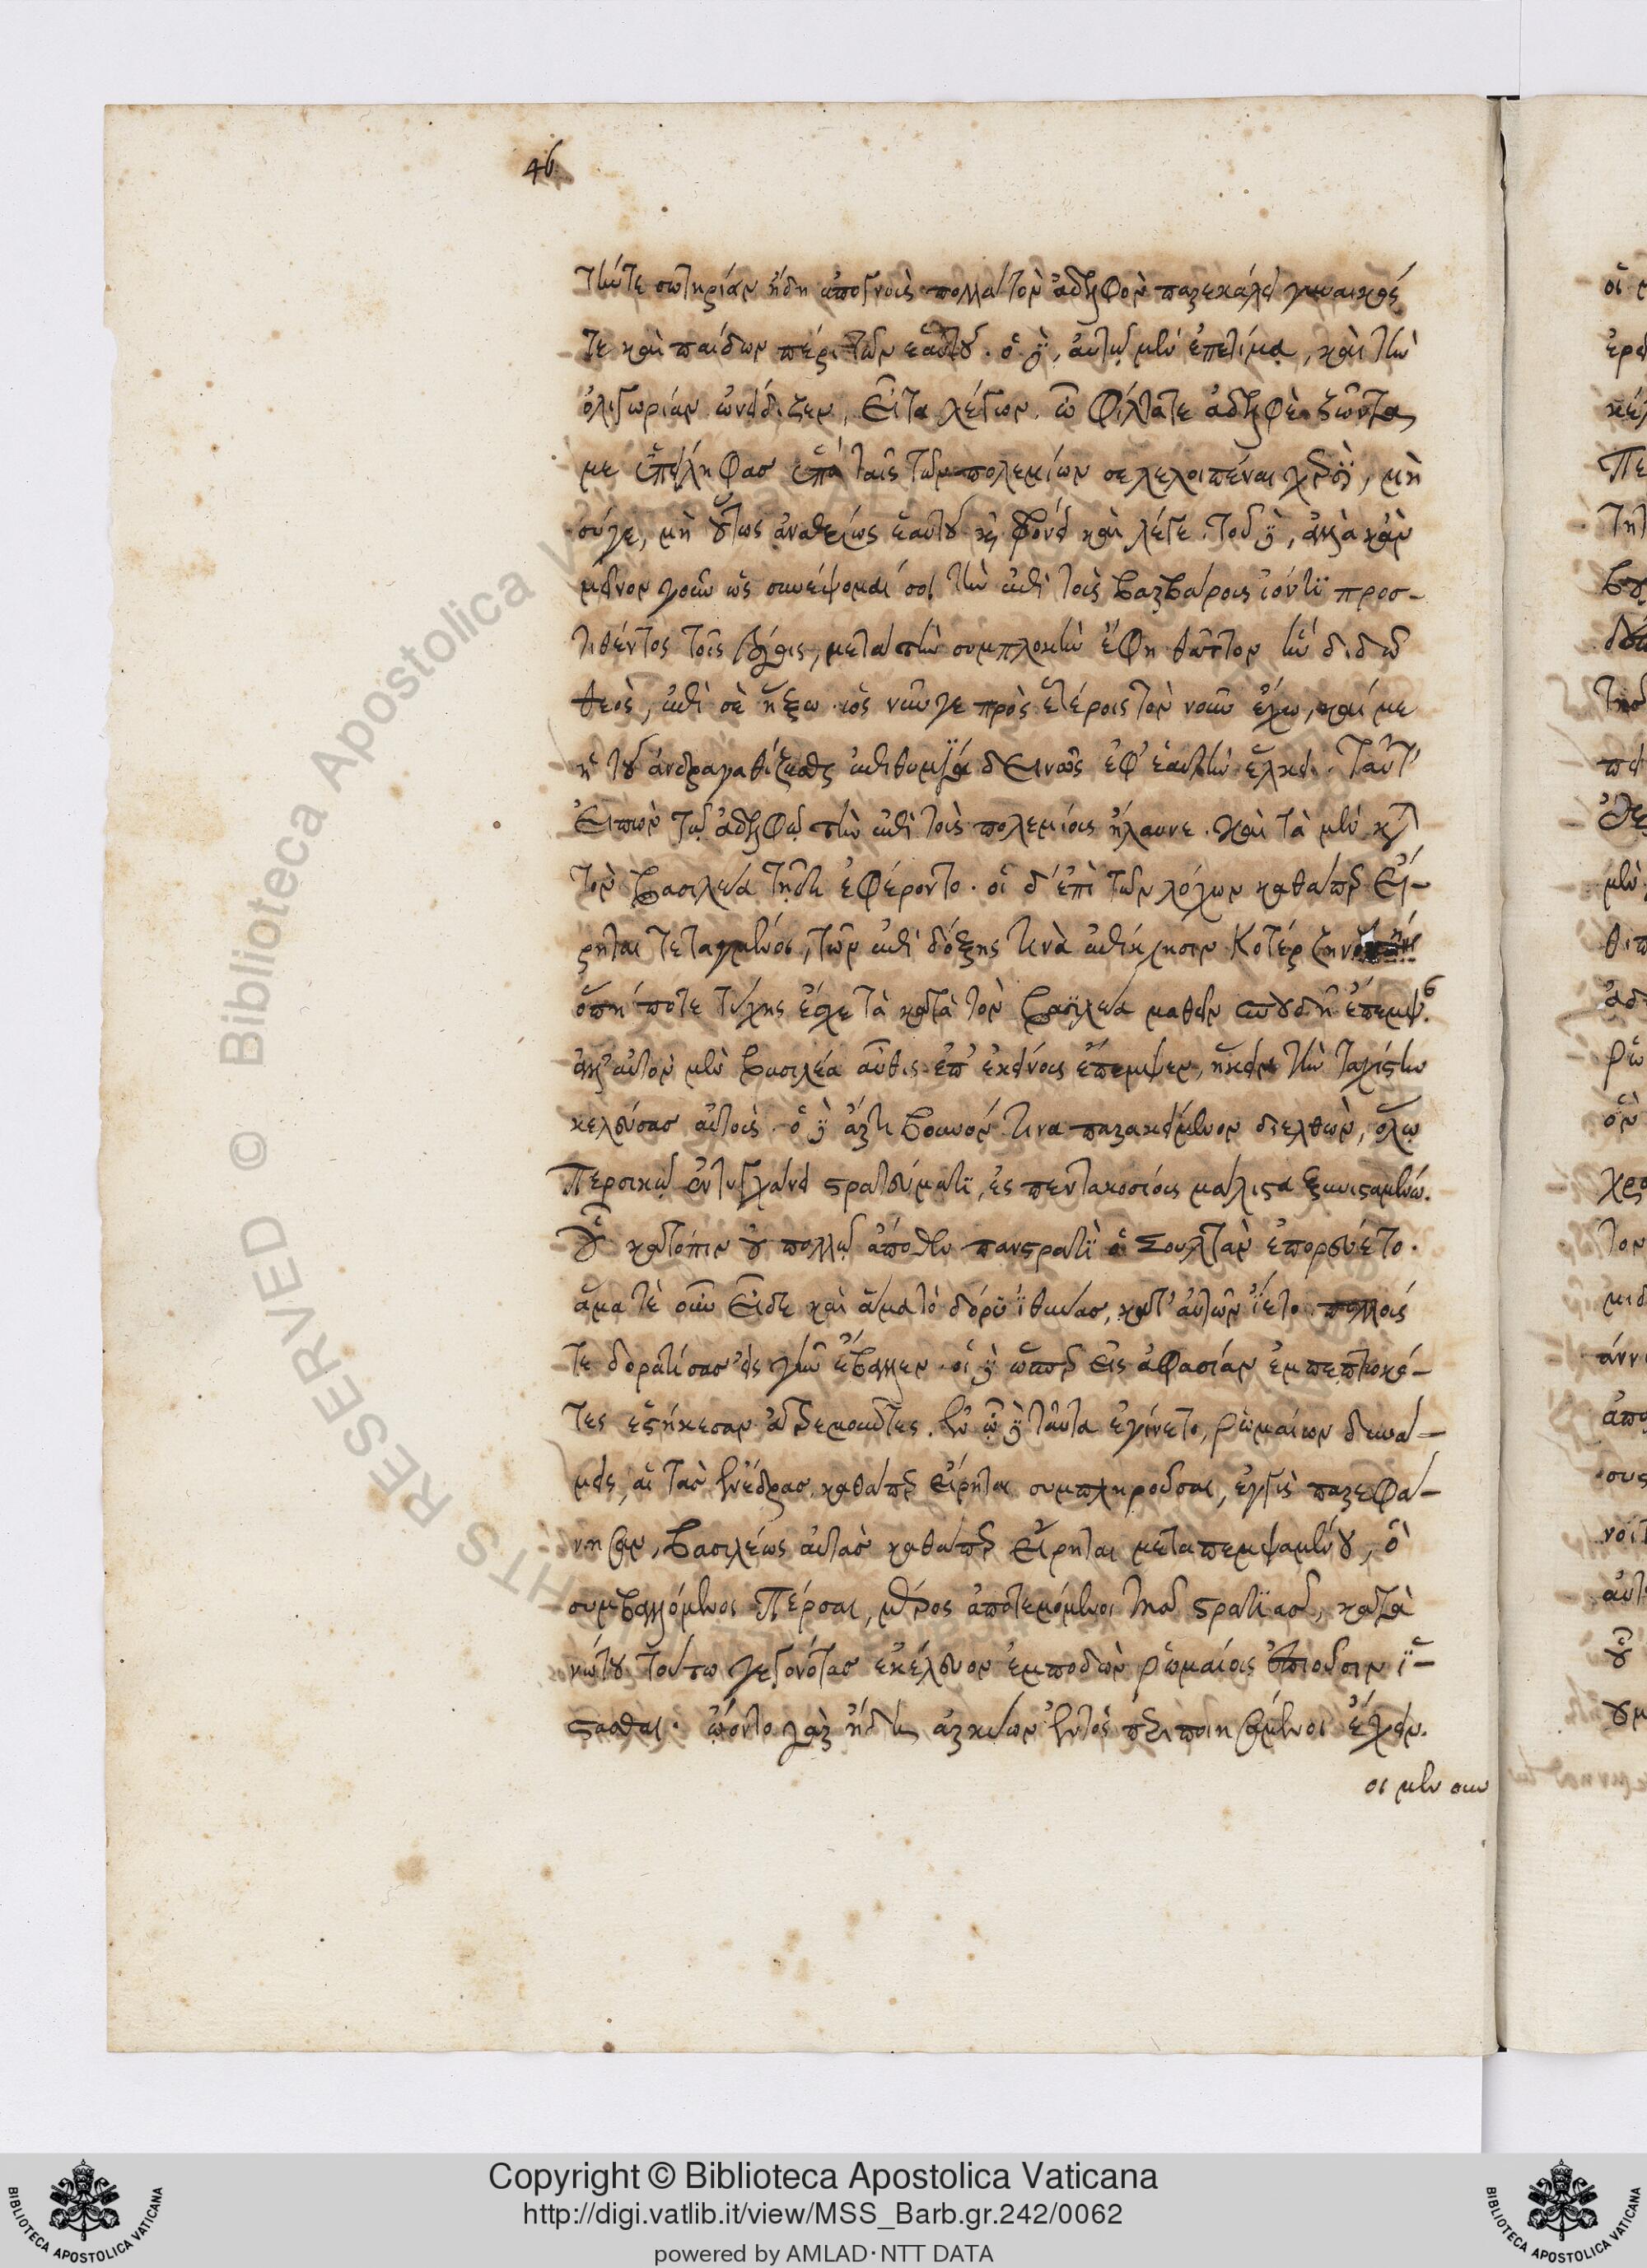 46
τήν τε σωτηρίαν ἤδη ἀπογνοὺς πολλὰ τὸν ἀδελφὸν παρεκάλει γυναικός
τε καὶ παίδων πέρι τῶν ἑαυτοῦ. ὁ δὲ, αὐτῷ μὲν ἐπετίμα, καὶ τὴν
ὀλιγωρίαν ὠνείδιζεν, εἶτα λέγων. ὦ φίλτατε ἀδελφὲ ζῶντα
με ὑπείληφας ὑπὸ ταῖς τῶν πολεμίων σε λελοιπέναι χερσὶ, μὴ
σύγε, μὴ οὕτως ἀναξίως ἑαυτοῦ καὶ φρόνει καὶ λέγε. τοῦ δὲ, ἀλλὰ κἂν
μεῖνον γοῦν ὡς συνέψομαί σοι τὴν ἐπὶ τοὺς βαρβάρους ἰόντι προσ-
τιθέντος τοῖς λόγοις, μετὰ τὴν συμπλοκὴν ἔφη θᾶττον ἢν διδῷ
θεὸς, ἐπὶ σὲ ἥξω. ὡς νῦν γε πρὸς ἑτέροις τὸν νοῦν ἔχω, καί με
ἡ τοῦ ἀνδραγαθίζεσθαι ἐπιθυμία δεινῶς ἐφ' ἑαυτὴν ἕλκει. ταῦτ'
εἰπὼν τῷ ἀδελφῷ τὴν ἐπὶ τοὺς πολεμίους ἤλαυνε. καὶ τὰ μὲν κατὰ
τὸν βασιλέα τῇδε ἐφέροντο. οἱ δ' ἐπὶ τῶν λόχων καθάπερ εἴ-
ρηται τεταγμένοι, τῶν ἐπὶ δόξης τινὰ ἐπίκλησιν Κοτέρτζην
ὅπη ποτε τύχης ἔχει τὰ κατὰ τὸν βασιλέα μαθεῖν σπουδῇ ἔπεμψε.
ἀλλ' αὐτὸν μὲν βασιλέα αὖθις ἐπ' ἐκείνους ἔπεμψεν, ἥκειν τὴν ταχίστην
κελεύσας αὐτούς. ὁ δὲ ἄρτι βουνόν τινα παρακείμενον διελθὼν, ὅλῳ
Περσικῷ ἐντυγχάνει στρατεύματι, ἐς πεντακοσίους μάλιστα ξυνισταμένῳ.
οὗ κατόπιν οὐ πολλῷ ἄποθεν πανστρατὶ ὁ Σουλτὰν ἐπορεύετο.
ἅμα τὲ οὖν εἶδε καὶ ἅμα τὸ δόρυ ἰθύνας, κατ' αὐτῶν ἵετο πολλούς
τε δορατίσας εἰς γῆν ἔβαλλεν. οἱ δὲ ὥσπερ εἰς ἀφασίαν ἐμπεπτωκό-
τες εἱστήκεσαν ἀτρεμοῦντες. ἐν ᾧ δὲ ταῦτα ἐγίνετο, ῥωμαίων δυνά-
μεις, αἱ τὰς ἐνέδρας καθάπερ εἴρηται συμπληροῦσαι, ἐγγὺς παρεφά-
νησαν, βασιλέως αὐτὰς καθάπερ εἴρηται μεταπεμψαμένου, ὃ
συμβαλλόμενοι Πέρσαι, μέρος ἀποτεμόμενοι τῆς στρατιᾶς, κατὰ
νώτου τούτω γεγονότας ἐκέλευον ἐμποδὼν ῥωμαίοις ἐπιοῦσιν ἵ-
στασθαι. ᾤοντο γὰρ ἤδη ἀρκύων ἐντὸς περιποιησάμενοι ἔχειν.
οι μεν ουν
Copyright © Biblioteca Apostolica Vaticana
http://digi.vatlib.it/view/MSS_Barb.gr.242/0062
powered by AMLAD·NTT DATA